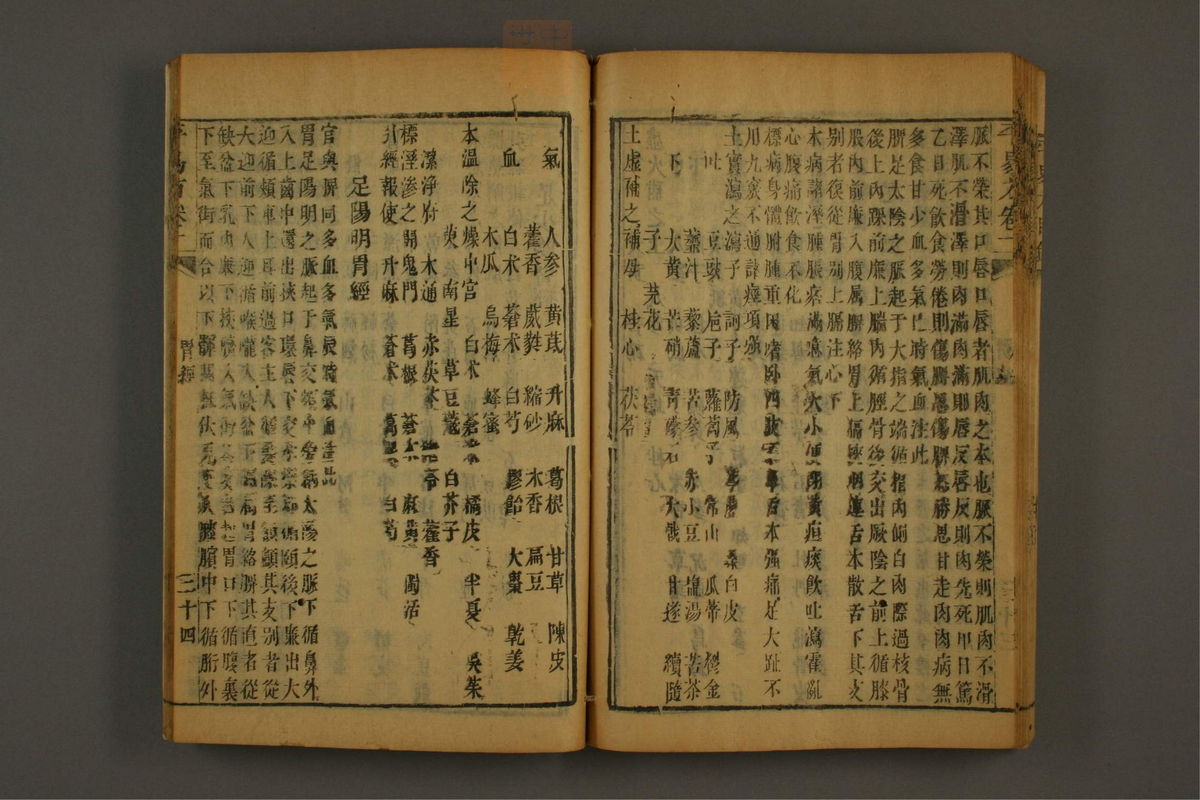 脈不榮其口唇口唇者肌肉之本也脈不榮則肌肉不滑
澤肌不滑澤則肉滿肉滿則唇反唇反則肉先死甲日篤
乙日死飲食勞倦則傷脾憂思傷脾為勝思甘走肉肉病無
多食甘少血多氣巳時氣血注此
脾足太陰之脈起于大指之端循指內側白肉際過核骨
後上內踝前廉上腨內循脛骨後交出厥陰之前上循膝
股內前廉入腹屬脾絡胃上膈挾咽連舌本散舌下其支
別者復從胃別上膈注心下
本病諸溼腫脹痞滿噫氣大小便閉黃疸痰飲吐瀉霍亂
心腹痛飲食不化
標病身體胕腫重困嗜臥四肢不舉舌本强痛足大趾不
用九竅不通諸痙項强
土實瀉之瀉子 訶子 防風 桑白皮
吐 豆豉 梔子 蘿蔔子 常山 瓜蒂 鬱金
虀汁 藜蘆 苦參 赤小豆 鹽湯 苦茶
下 大黃 芒硝 青礞石 大戟 甘遂 續隨
子 芫花
土虛補之補母 桂心 茯苓
氣 人參 黃芪 升麻 葛根 甘草 陳皮
藿香 葳蕤 縮砂 木香 扁豆
血 白朮 蒼朮 白芍 膠飴 大棗 乾姜
木瓜 烏梅 蜂蜜
本溼除之燥中宮 白朮 蒼朮 橘皮 半夏 吳茱
萸 南星 草豆蔻 白芥子
潔淨府 木通 赤茯苓 藿香
標溼滲之開鬼門 葛根 蒼朮 麻黃 獨活
引經報使 升麻 蒼朮 葛根 白芍
足陽明胃經
官與脾同多血多氣辰時氣血注此
胃足陽明之脈起于鼻交頞中旁納太陽之脈下循鼻外
入上齒中還出挾口環唇下交承漿却循頤後下廉出大
迎循頰車上耳前過客主人循髮際至額顱其支別者從
大迎前下人迎循喉嚨入缺盆下膈屬胃絡脾其直者從
缺盆下乳內廉下挾臍入氣街其支者起胃口下循腹裏
下至氣街而合以下髀關抵伏兔下膝臏中下循䯒外
胃經
三十四